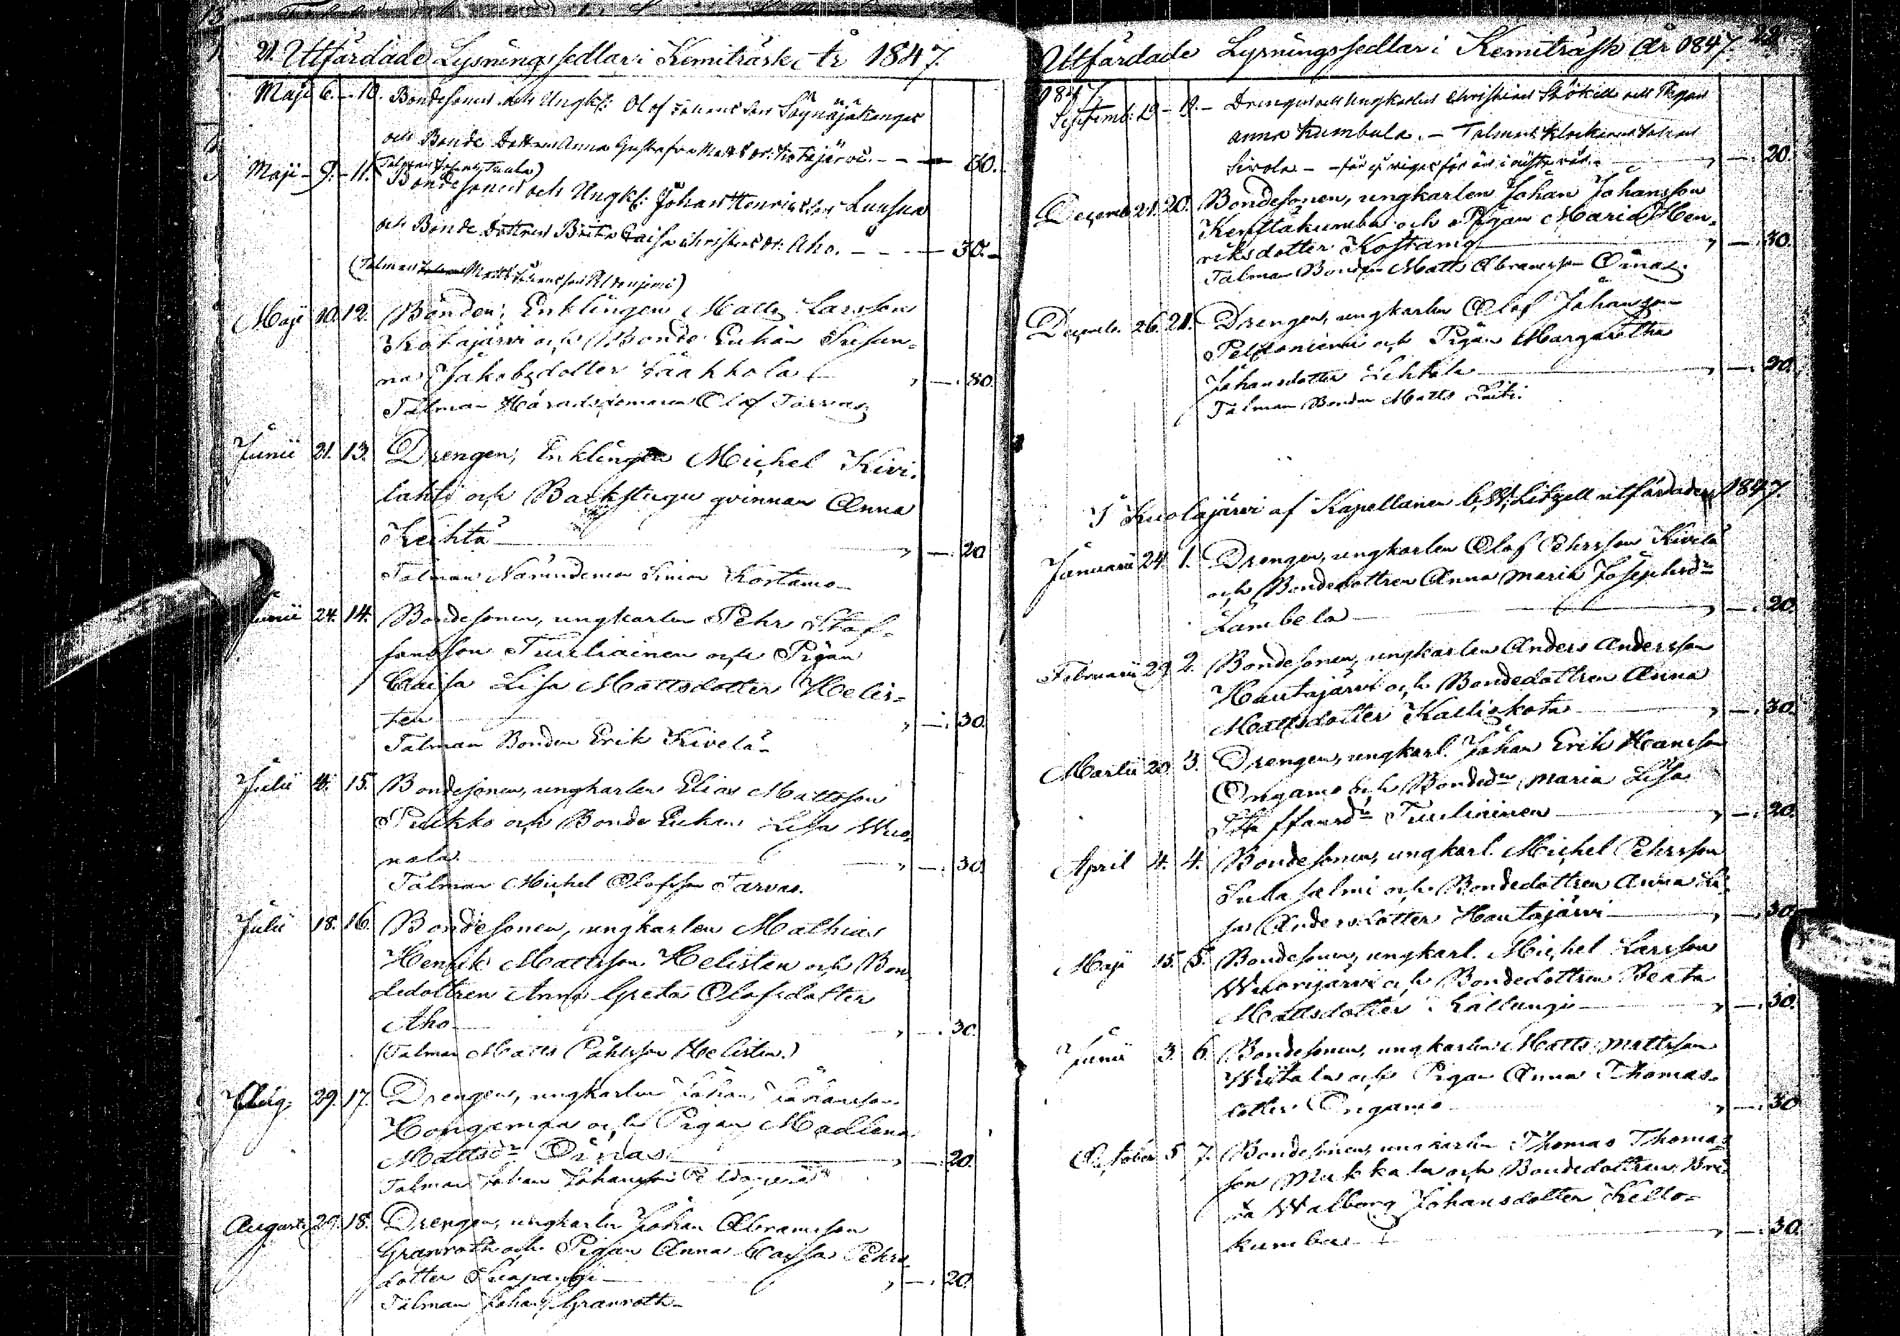 21. Utfärdade Lysningssedlar i Kemiträsk År 1847.
Maji 6. - 10. Bondesonen och Ungk: Olof
och Bonde Dottren Anna Gustafva Matts dr: Kotajärvi. - - — 30.
(Talman Johan Tuula)
Maji - 9. - 11. Bondesonen och Ungk: Johan Henriksson Luusua
och Bonde Dottren Brita Caisa Christens dr. Aho. - - - — 30. -
(Talman Matts Peltoniemi)
Maji 10. 12. Bonden, Enklingen Matts Larsson
Kotajärvi och Bonde Enkan Susan-
na Jakobsdotter Jäähkola — " — . 30.
Talman Häradsdomaren Olof Tarvas
Junii 21. 13. Drengen, Enklingen Michel Kivi-
lahti och Backstugu qvinnan Anna
Keihtä — " — . 20
Talman Nämndeman Simon Kostamo
Junii 24. 14. Bondesonen, ungkarlen Pehr Staf-
fansson Tuuliainen och Pigan
Caisa Lisa Mattsdotter Helis-
ten — " — . 30.
Talman Bonden Erik Kivelä
Julii 4. 15. Bondesonen, ungkarlen Elias Mattsson
Pulkko och Bonde Enkan Lisa Wuo-
nala — " — . 30.
Talman Michel Olofsson Tarvas.
Julii 18. 16. Bondesonen, ungkarlen Mathias
Henrik Mattsson Helisten och Bon-
dedottren Anna Greta Olofsdotter
Aho — " — . 30.
(Talman Matts Påhlsson Helisten.)
Aug. 29. 17. Drengen, ungkarlen Johan Johansson
Hongamaa och Pigan Madlena
Mattsdr Oinas — " — . 20.
Talman Johan Johansson
Augusti 29. 18. Drengen, ungkarlen Johan Abramsson
Granroth och Pigan Anna Caisa Pehrs-
dotter — " — . 20.
Talman Johan Granroth
Utfärdade Lysningssedlar i Kemiträsk År 1847. 22.
1847.
Septemb: 19 - 19. - Drengen och Ungkarlen Christian och Pigan
Anna Kumbula. - Talman Klockaren Johan
Sirola - — . 20.
Decemb 21. 20. Bondesonen, ungkarlen Johan Johansson
Kenttäkumbu och Pigan Maria Hen-
riksdotter Kostamo — " — . 30.
Talman Bonden Matts Abramsson Oinas.
Decemb. 26. 21. Drengen, ungkarlen Olof Johansson
Peltoniemi och Pigan Margaretha
Johansdotter Lehtola — " — . 20.
Talman Bonden Matts Laiti.
I Kuolajärvi af Kapellanen C. W. Liljell utfärdade, 1847.
Januarii 24. 1. Drengen, ungkarlen Olof Ehrsson Kivelä
och Bondedottren Anna Maria Josephsdr
Lambela — " — . 20.
Februarii 29 2. Bondesonen, ungkarlen Anders Andersson
Hautajärvi och Bondedottren Anna
Mattsdotter Kalliokota — " — . 30.
Martii 20 3. Drengen, ungkarl. Johan Erik Hansson
Ongamo och Bondedr Maria Lisa
Staffansdr Tuuliainen — " — . 20.
April 4. 4. Bondesonen, ungkarl. Michel Pehrsson
Sulla Salmi och Bondedottren Anna Li-
sa Andersdotter Hautajärvi — " — . 30.
Maji 15. 5. Bondesonen, ungkarl. Michel Larsson
Wuorijärvi och Bondedottren Beata
Mattsdotter Kallungi — " — . 30.
Junii 3. 6. Bondesonen, ungkarlen Matts Mattsson
och Pigan Anna Thomas-
dotter Ongamo — " — . 30
October 5 7. Bondesonen, ungkarlen Thomas Thomas-
son Mukkala och Bondedottren Bri-
ta Walborg Johansdotter Kello-
kumbu — " — . 30.